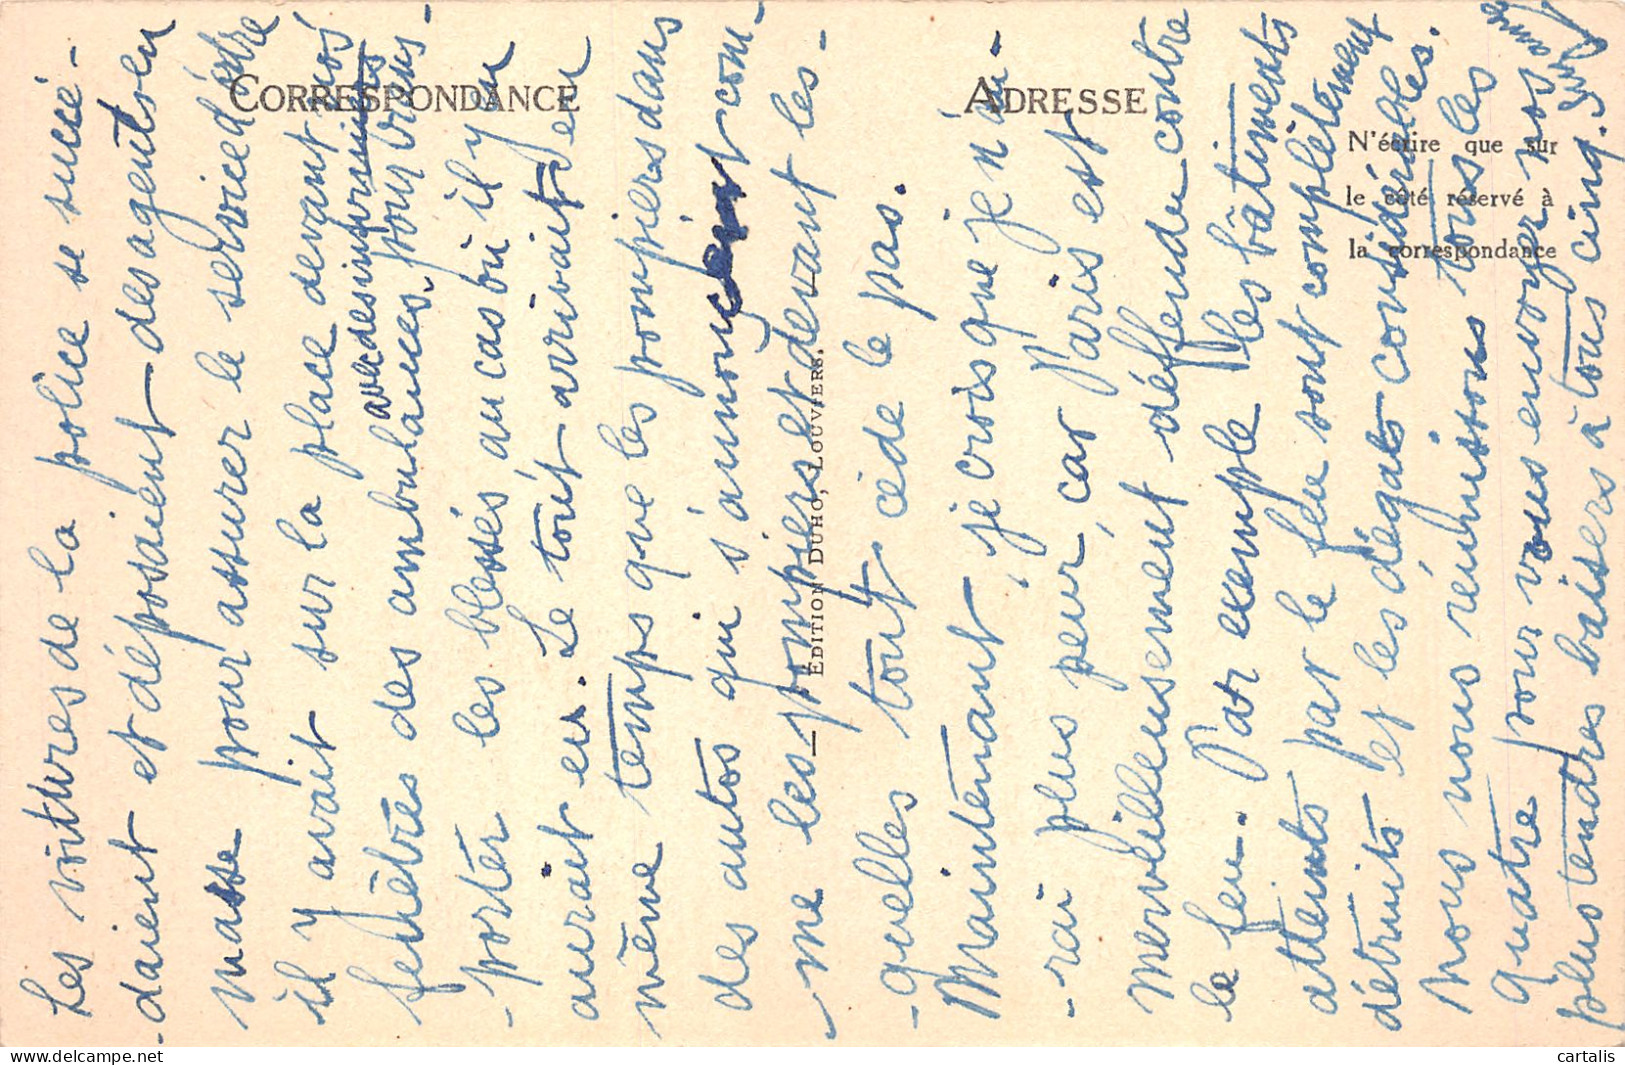 Les voitures de la police se succé-
-daient et déposaient des agents en
masse pour assurer le service d'ordre
il y avait sur la place devant nos
fenêtres des ambulances, pour trans-
avec des infirmières
-porter les blessés au cas où il y en
aurait eu. Le tout arrivait en
même temps que les pompiers dans
des autos qui s'annonçent com-
-me les pompiers et devant les-
-quelles tout cède le pas.
Maintenant, je crois que je n'au-
-rai plus peur, car Paris est
merveilleusement déffendu contre
le feu. Par exemple les bâtiments
atteints par le feu sont complètement
détruits et les dégats considérables.
Nous nous réunissons tous les
quatre pour vous envoyer nos
plus tendres baisers à tous cinq.
CORRESPONDANCE
ADRESSE
N'écrire que sur
le côté réservé à
la correspondance
ÉDITION DUHO, LOUVIERS.
cartalis